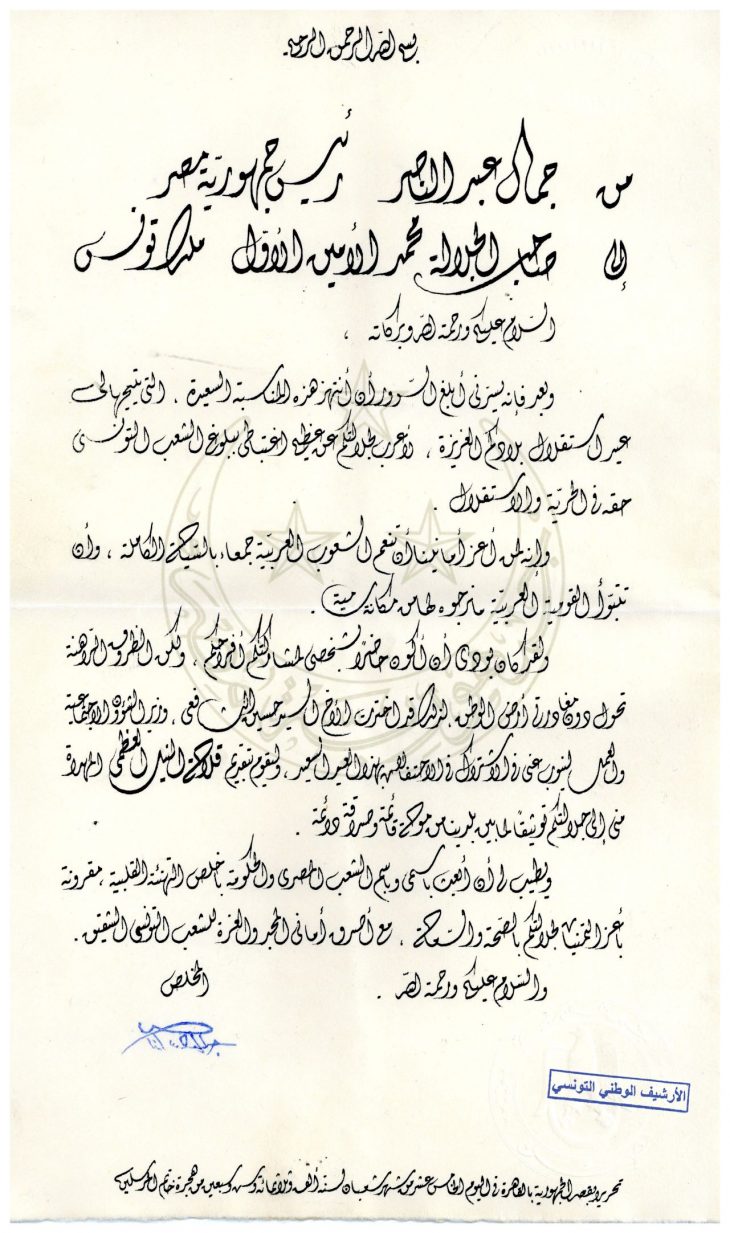 بسم الله الرحمن الرحيم
من جمال عبد الناصر رئيس جمهورية مصر
إلى صاحب الجلالة محمد الأمين الأول ملك تونس
السلام عليكم ورحمة الله وبركاته ،
وبعد فإنه يسرني أبلغ السرور أن أنتهز هذه المناسبة السعيدة ، التي يتيحها لي
عيد استقلال بلادكم العزيزة ، لأعرب لجلالتكم عن عظيم اغتباطي ببلوغ الشعب التونسي
حقه في الحرية والاستقلال .
وإنه لمن أعز أمانينا أن تنعم الشعوب العربية جمعاء بالسيادة الكاملة ، وأن
تتبوأ القومية العربية ما نرجوه لها من مكانة سامية .
ولقد كان بودي أن أكون حاضرا بشخصي لمشاركتكم أفراحكم ، ولكن الظروف الراهنة
تحول دون مغادرتي أرض الوطن . لذلك فقد اخترت الأخ السيد حسين الشافعي ، وزير الشؤون الاجتماعية
والعمل لينوب عني في الاشتراك في الاحتفال بهذا العيد السعيد ، وليقوم بتقديم قلادة النيل العظمى المهداة
مني إلى جلالتكم توثيقا لما بين بلدينا من مودة قائمة وصداقة دائمة .
ويطيب لي أن أبعث باسمي وباسم الشعب المصري والحكومة بأخلص التهنئة القلبية ، مقرونة
بأعز التمنيات لجلالتكم بالصحة والسعادة ، مع أصدق أماني المجد والعزة للشعب التونسي الشقيق .
والسلام عليكم ورحمة الله .
المخلص
الأرشيف الوطني التونسي
تحريرا بقصر الجمهورية بالقاهرة في اليوم الخامس عشر من شهر شعبان لسنة ألف وثلاثمائة وست وسبعين من هجرة خاتم المرسلين